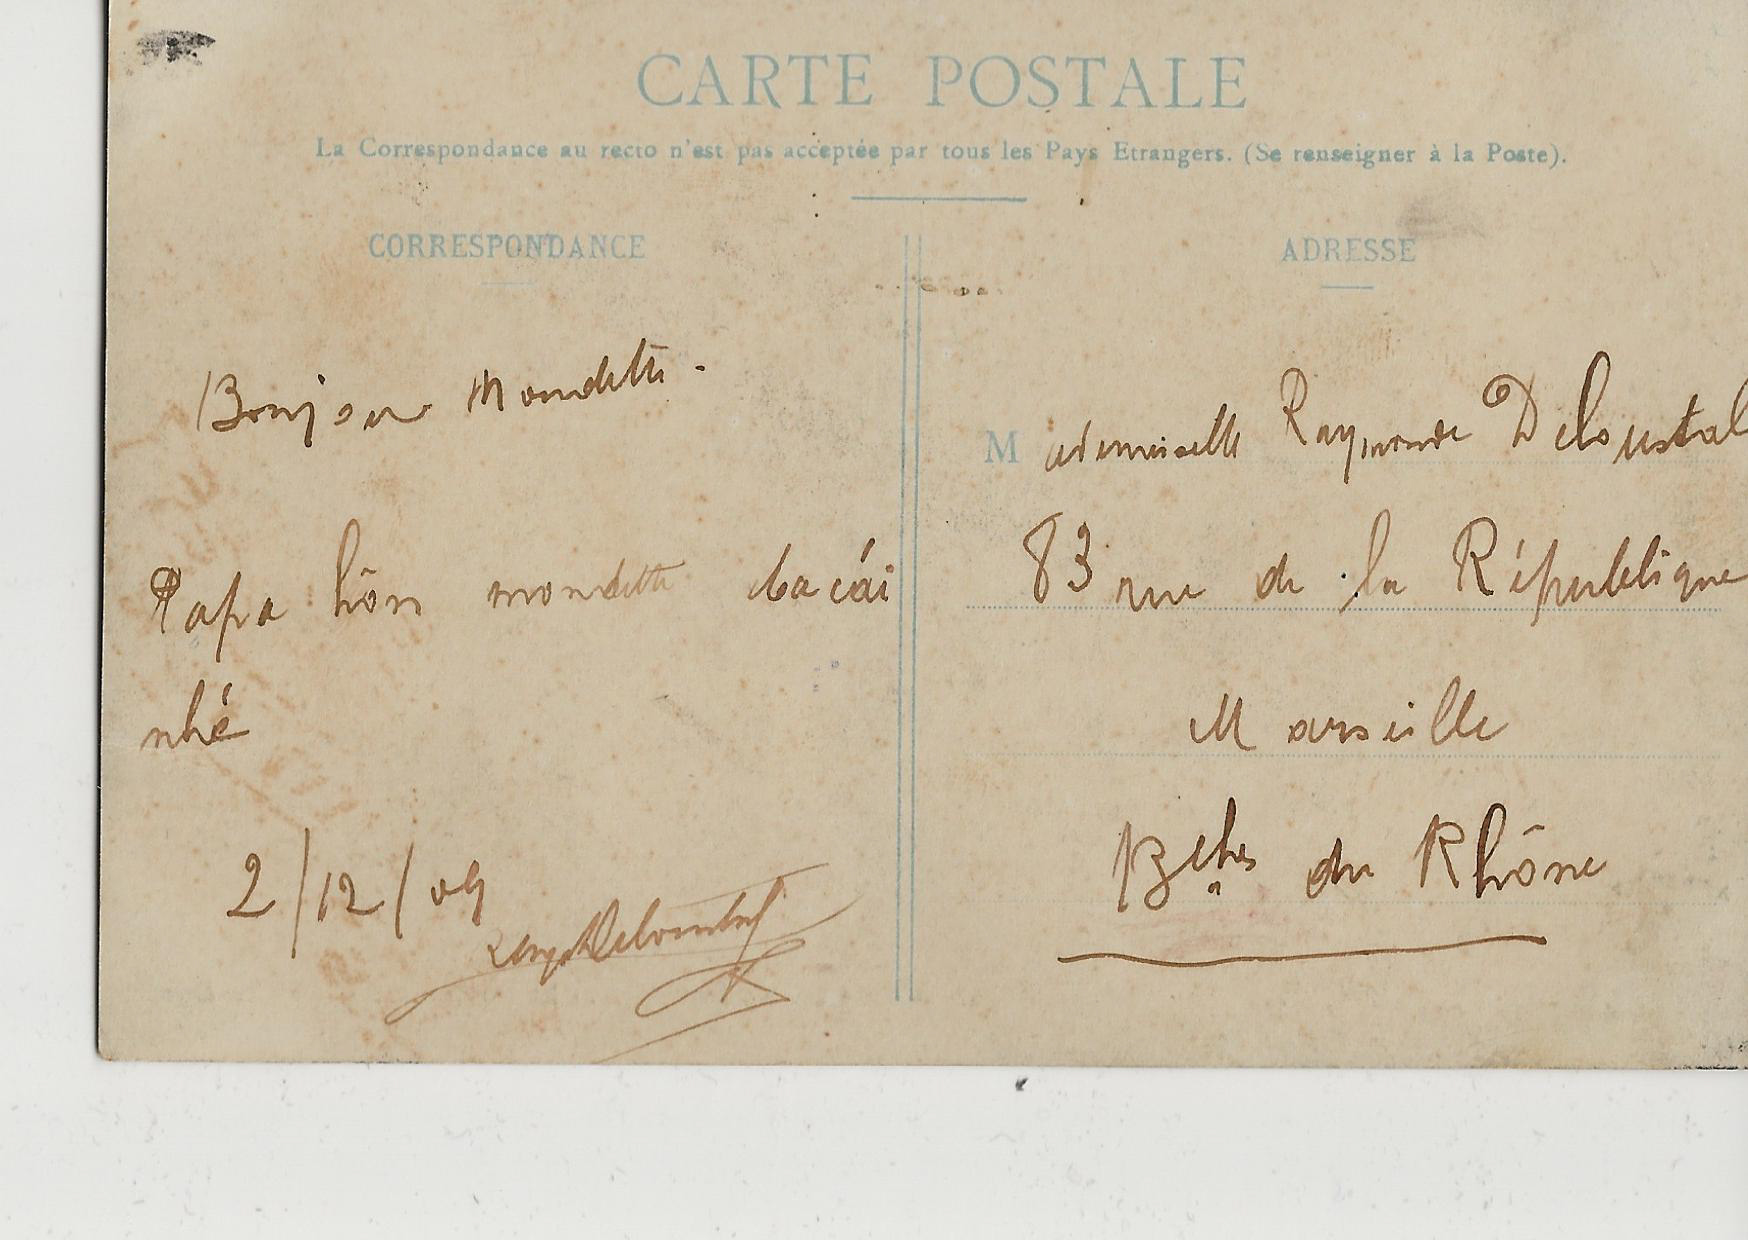 CARTE POSTALE
La Correspondance au recto n'est pas acceptée par tous les Pays Etrangers. (Se renseigner à la Poste).
CORRESPONDANCE
ADRESSE
Bonjour Mondette.
Papa hôn mondette ba cái
nhé
2/12/09
Deloustal
Mademoiselle Raymonde Deloustal
83 rue de la République
Marseille
Bches du Rhône